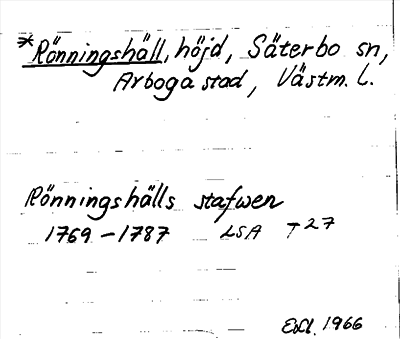 *Rönningshäll, höjd, Säterbo sn,
Arboga stad, Västm. l.
Rönningshälls stafwen
1769-1787 LSA T27
1966